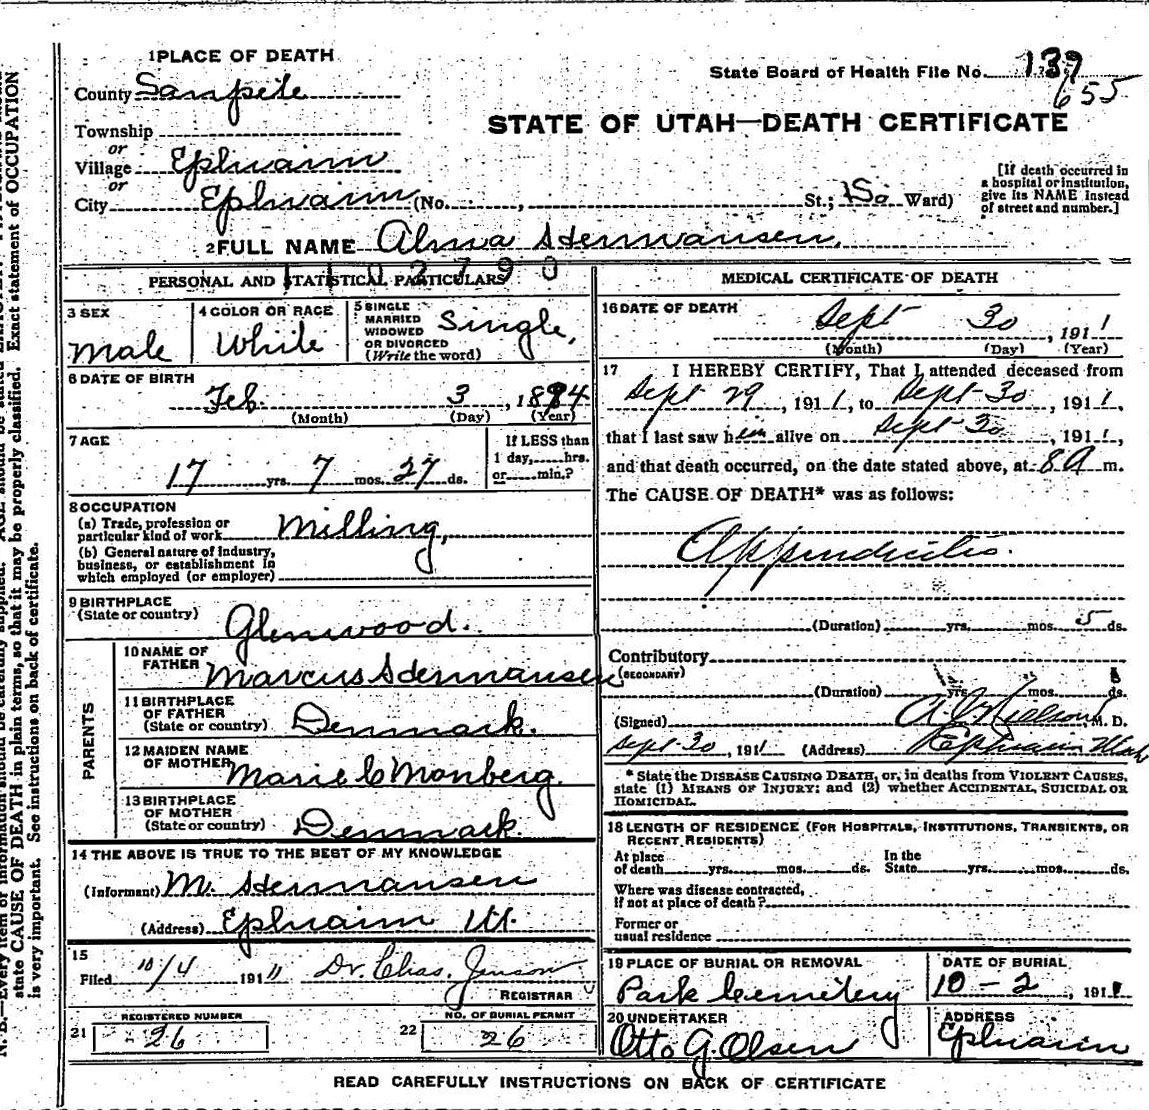 1 PLACE OF DEATH
State Board of Health File No. 139
655
County Sanpete
STATE OF UTAH—DEATH CERTIFICATE
Township
or
Village Ephraim
or
City Ephraim (No. , St.; So Ward)
[If death occurred in
a hospital or institution,
give its NAME instead
of street and number.]
2 FULL NAME Alma Hermansen.
1102790
PERSONAL AND STATISTICAL PARTICULARS
3 SEX
Male
4 COLOR OR RACE
White
5 SINGLE
MARRIED
WIDOWED
OR DIVORCED
(Write the word)
Single,
6 DATE OF BIRTH
Feb. 3, 1894
(Month) (Day) (Year)
7 AGE
17 yrs. 7 mos. 27 ds.
If LESS than
1 day, hrs.
or min.?
8 OCCUPATION
(a) Trade, profession or
particular kind of work Milling,
(b) General nature of industry,
business, or establishment in
which employed (or employer)
9 BIRTHPLACE
(State or country) Glenwood.
PARENTS
10 NAME OF
FATHER Marcus Hermansen
11 BIRTHPLACE
OF FATHER
(State or country) Denmark.
12 MAIDEN NAME
OF MOTHER Marie C Monberg.
13 BIRTHPLACE
OF MOTHER
(State or country) Denmark.
14 THE ABOVE IS TRUE TO THE BEST OF MY KNOWLEDGE
(Informant) M. Hermansen
(Address) Ephraim Ut.
15
Filed 10/4 1911 Dr. Chas. Jenson
REGISTRAR
21 REGISTERED NUMBER
26
22 NO. OF BURIAL PERMIT
26
MEDICAL CERTIFICATE OF DEATH
16 DATE OF DEATH
Sept 30, 1911
(Month) (Day) (Year)
17 I HEREBY CERTIFY, That I attended deceased from
Sept 29, 1911, to Sept-30, 1911,
that I last saw him alive on Sept-30, 1911,
and that death occurred, on the date stated above, at 8 A m.
The CAUSE OF DEATH* was as follows:
Appendicitis.
(Duration) yrs. mos. 5 ds.
Contributory
(SECONDARY)
(Duration) yrs. mos. ds.
(Signed) Nielson M. D.
Sept-30, 1911 (Address) Ephraim Utah
* State the DISEASE CAUSING DEATH, or, in deaths from VIOLENT CAUSES,
state (1) MEANS OF INJURY; and (2) whether ACCIDENTAL, SUICIDAL OR
HOMICIDAL.
18 LENGTH OF RESIDENCE (FOR HOSPITALS, INSTITUTIONS, TRANSIENTS, OR
RECENT RESIDENTS)
At place
of death yrs. mos. ds.
In the
State yrs. mos. ds.
Where was disease contracted,
if not at place of death?
Former or
usual residence
19 PLACE OF BURIAL OR REMOVAL
Park Cemetery
DATE OF BURIAL
10-2, 1911
20 UNDERTAKER
Otto G. Olsen
ADDRESS
Ephraim
READ CAREFULLY INSTRUCTIONS ON BACK OF CERTIFICATE
N. B.—Every item of information should be carefully supplied. AGE should be stated
state CAUSE OF DEATH in plain terms, so that it may be properly classified. Exact statement of OCCUPATION
is very important. See instructions on back of certificate.